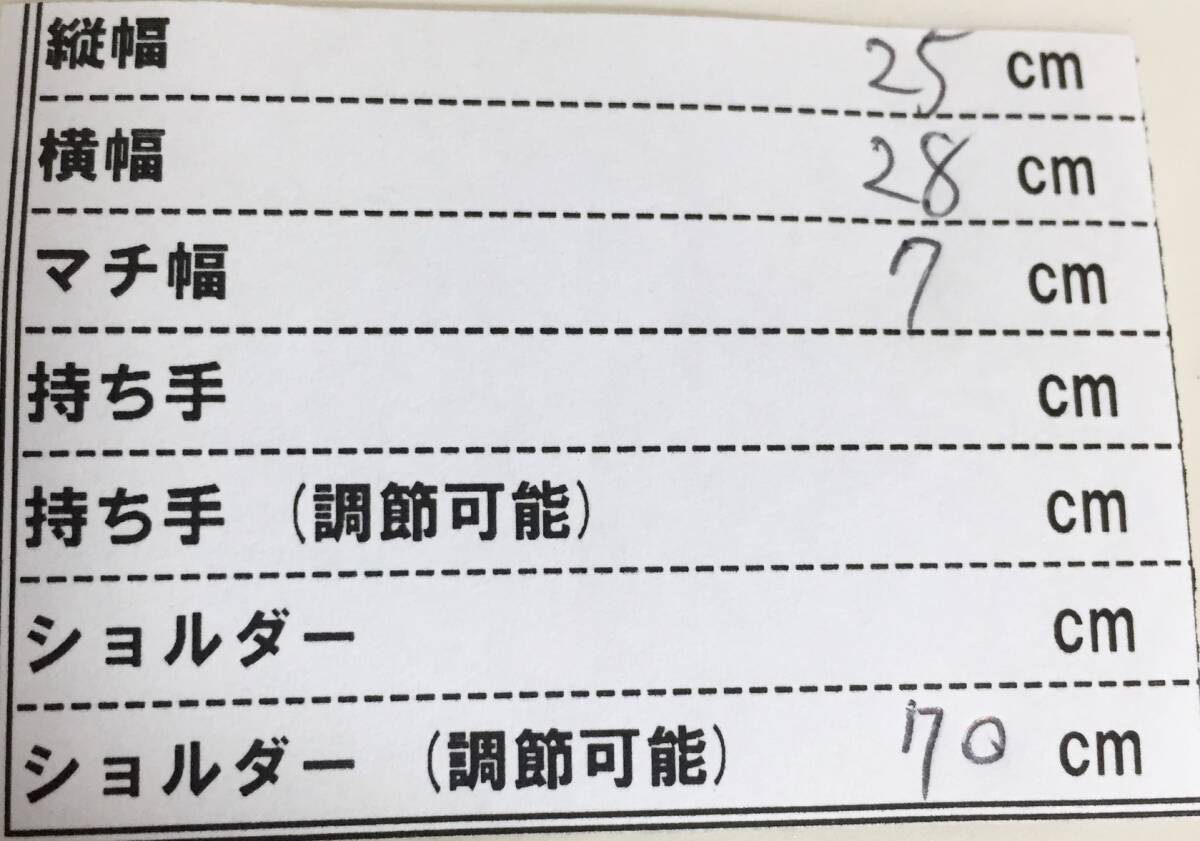 縦幅 25 cm
横幅 28 cm
マチ幅 7 cm
持ち手 cm
持ち手 (調節可能) cm
ショルダー cm
ショルダー (調節可能) 70 cm